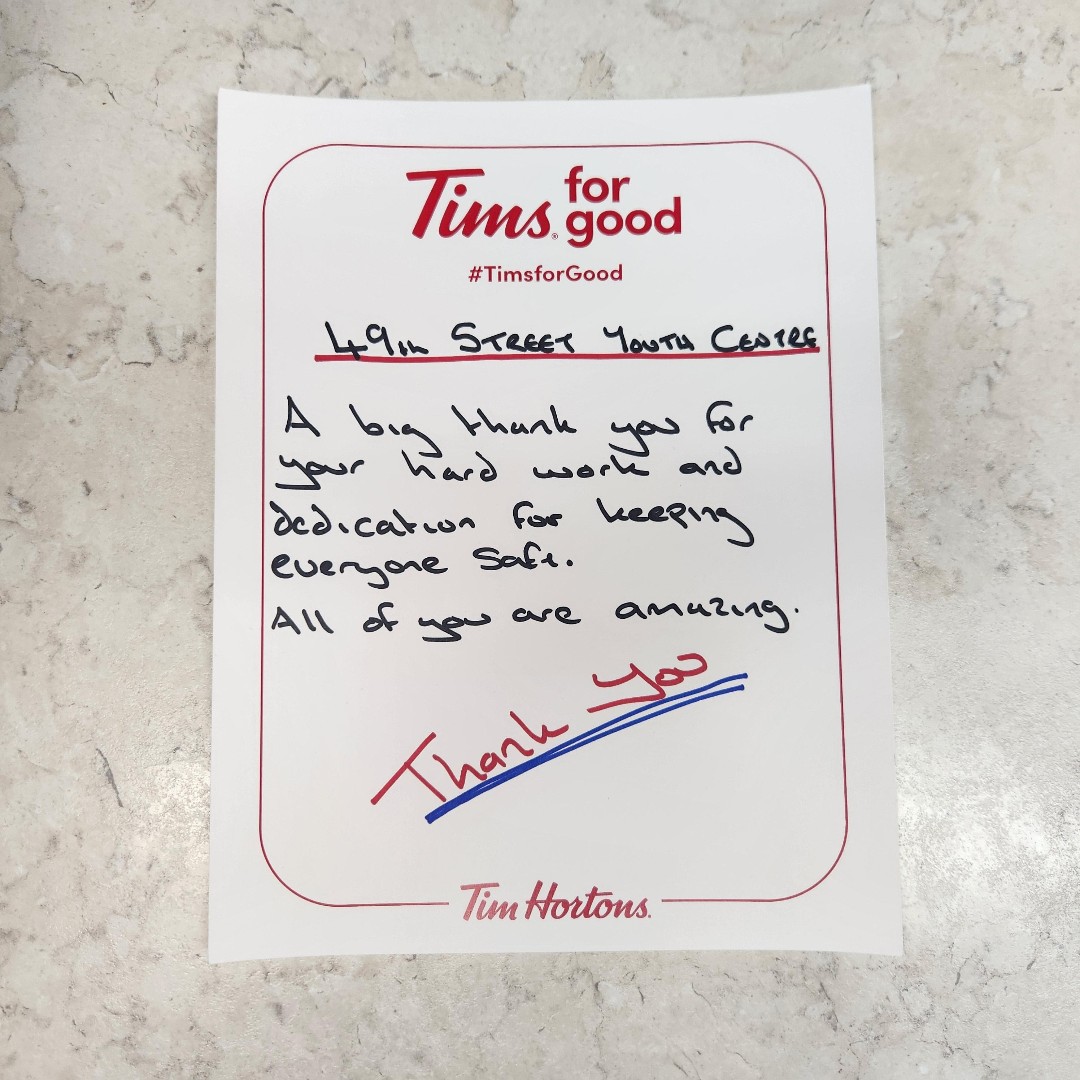 Tims® for good
#TimsforGood
49TH STREET YOUTH CENTRE
A big thank you for
your hard work and
dedication for keeping
everyone safe.
All of you are amazing.
Thank You
Tim Hortons.